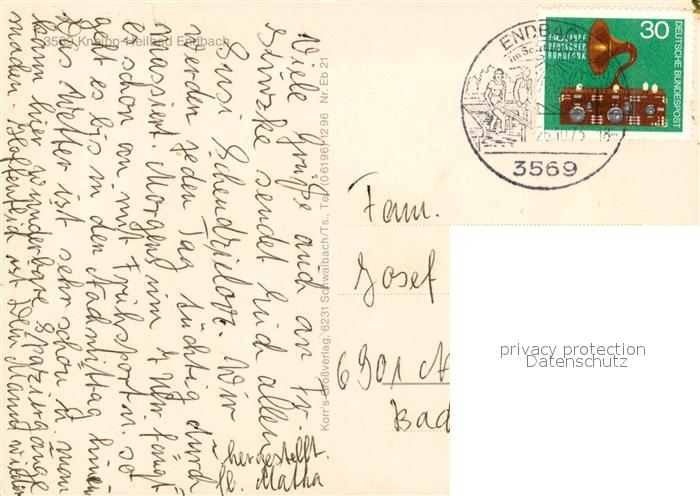 3569 Kneipp-Heilbad Endbach
Viele Grüße auch an Fr.
sendet Euch allen
Susi Wir
werden jeden Tag tüchtig durch
massiert Morgend um 4 Uhr fängt
es schon an mit Frühsport u. so
geht es bis in den Nachmittag hinein
Das Wetter ist sehr schön u. man
kann hier wunderbare Spaziergänge
machen. Hoffentlich ist Dein Mann wieder
hergestellt.
Korr's Großverlag, 6231 Schwalbach/Ts., Tel. (06196) 1296 Nr. Eb 21
ENDBACH
3569
50 JAHRE
DEUTSCHER
RUNDFUNK
30
DEUTSCHE BUNDESPOST
Fam.
Josef
6901
Bad
privacy protection
Datenschutz